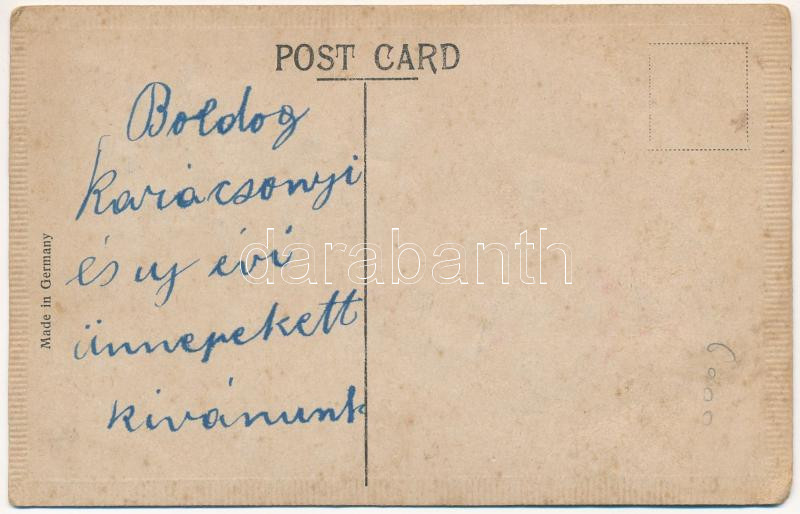 POST CARD
Boldog
karácsonyi
és uj évi
ünnepekett
kivánunk
Made in Germany
darabanth